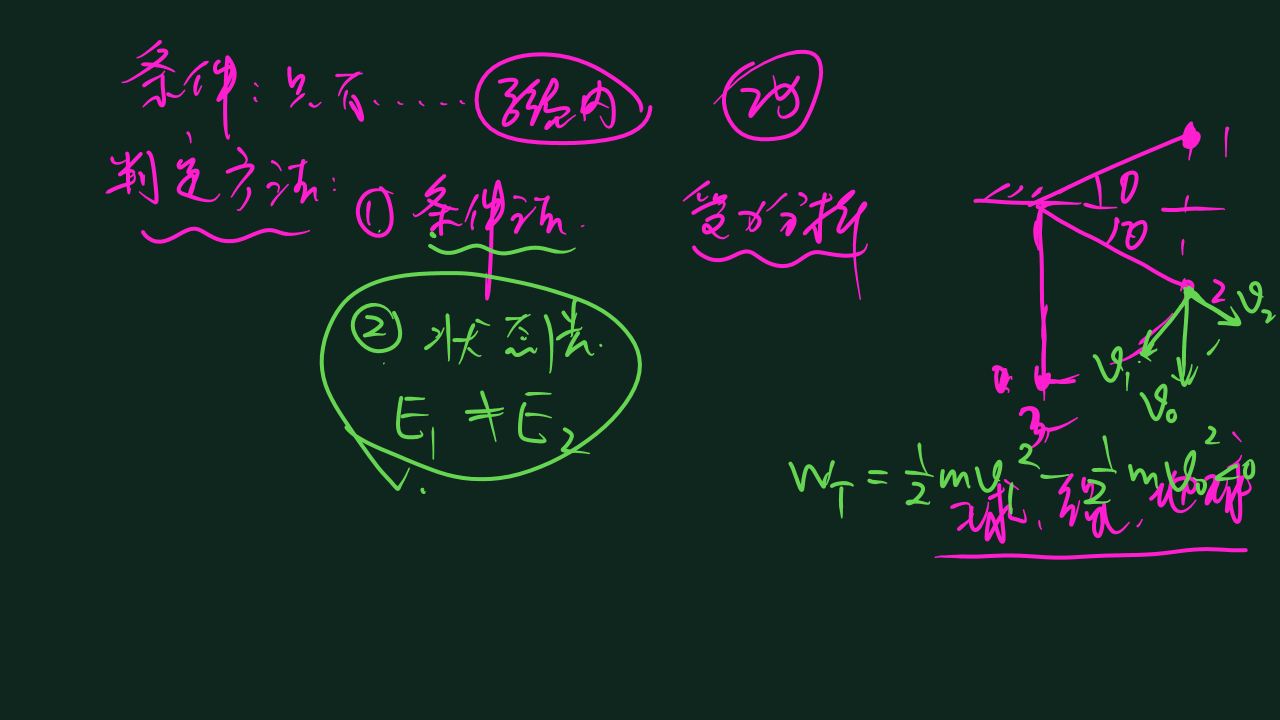 条件:只有……系统内 功
判定方法:①条件法. 受力分析
②状态法.
E₁ ≠ E₂
1
θ
θ
2
v₂
v₁
v₀
3
W_T = ½mv₁² − ½mv₀² < 0
球、绳、地球